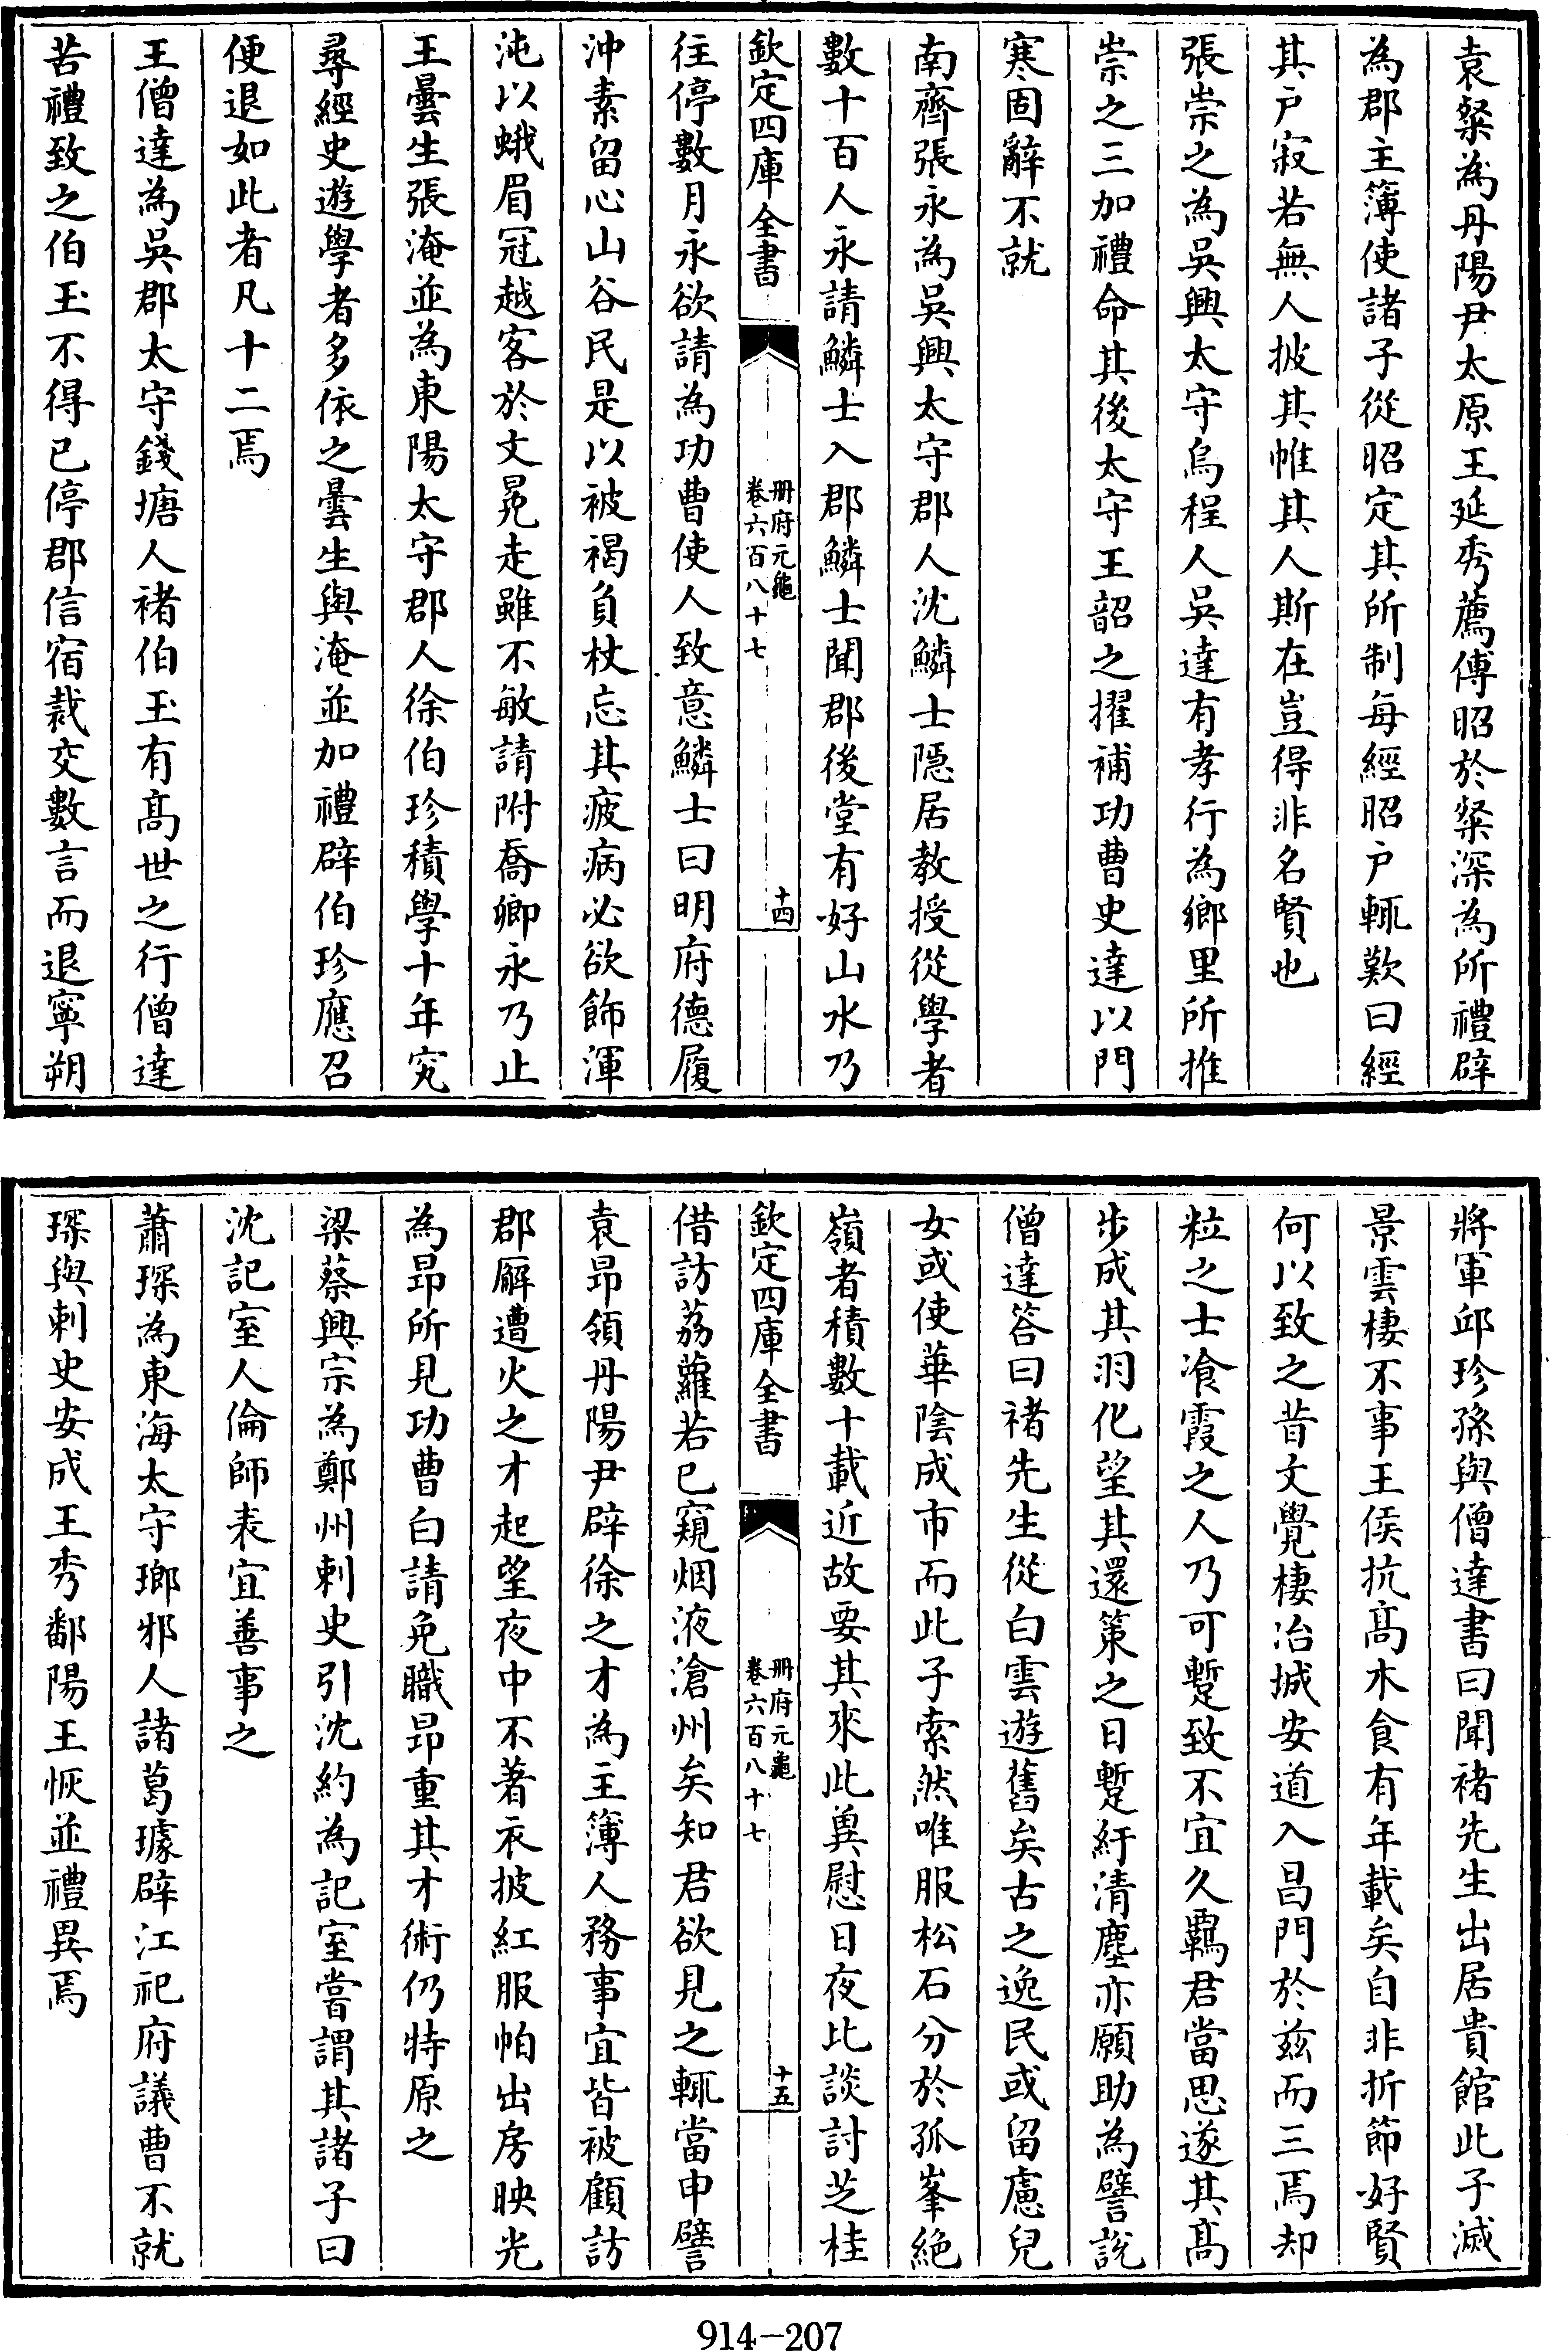 袁粲為丹陽尹太原王延秀薦傅昭於粲深為所禮辟
為郡主簿使諸子從昭定其所制每經昭户輒歎曰經
其户寂若無人披其帷其人斯在豈得非名賢也
張崇之為吳興太守烏程人吳逹有孝行為鄉里所推
崇之三加禮命其後太守王韶之擢補功曹史逹以門
寒固辭不就
南齊張永為吳興太守郡人沈鱗士隱居教授從學者
數十百人永請鱗士入郡鱗士聞郡後堂有好山水乃
欽定四庫全書
冊府元龜
卷六百八十七
十四
往停數月永欲請為功曹使人致意鱗士曰明府德履
沖素留心山谷民是以被褐負杖忘其疲病必欲飾渾
沌以蛾眉冠越客於文冕走雖不敏請附喬卿永乃止
王曇生張淹並為東陽太守郡人徐伯珍積學十年究
尋經史遊學者多依之曇生與淹並加禮辟伯珍應召
便退如此者凡十二焉
王僧達為吳郡太守錢塘人褚伯玉有髙世之行僧達
苦禮致之伯玉不得已停郡信宿裁交數言而退寧朔
將軍邱珍孫與僧達書曰聞褚先生出居貴館此子滅
景雲棲不事王侯抗髙木食有年載矣自非折節好賢
何以致之昔文覺棲冶城安道入昌門於兹而三焉却
粒之士飡霞之人乃可蹔致不宜久羈君當思遂其髙
步成其羽化望其還策之日蹔紆清塵亦願助為譬說
僧達答曰禇先生從白雲遊舊矣古之逸民或留慮兒
女或使華陰成市而此子索然唯服松石分於孤峯絶
嶺者積數十載近故要其來此冀慰日夜比談討芝桂
欽定四庫全書
冊府元龜
卷六百八十七
十五
借訪荔蘿若已窺烟液滄州矣知君欲見之輒當申譬
袁昂領丹陽尹辟徐之才為主簿人務事宜皆被顧訪
郡廨遭火之才起望夜中不著衣披紅服帕出房映光
為昂所見功曹白請免職昂重其才術仍特原之
梁蔡興宗為鄭州刺史引沈約為記室嘗謂其諸子曰
沈記室人倫師表宜善事之
蕭琛為東海太守瑯邪人諸葛璩辟江祀府議曹不就
琛與刺史安成王秀鄱陽王恢並禮異焉
914-207